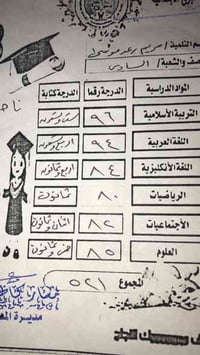 اسم التلميذ / مريم رعد
الصف والشعبة / السادس
المواد الدراسية الدرجة رقما الدرجة كتابة
التربية الأسلامية ٩٦ ست وتسعون
اللغة العربية ٩٤ اربع وتسعون
اللغة الأنكليزية ٨٤ اربع وثمانون
الرياضيات ٨٠ ثمانون
الأجتماعيات ٨٢ اثنان وثمانون
العلوم ٨٥ خمس وثمانون
المجموع ٥٢١
مديرة